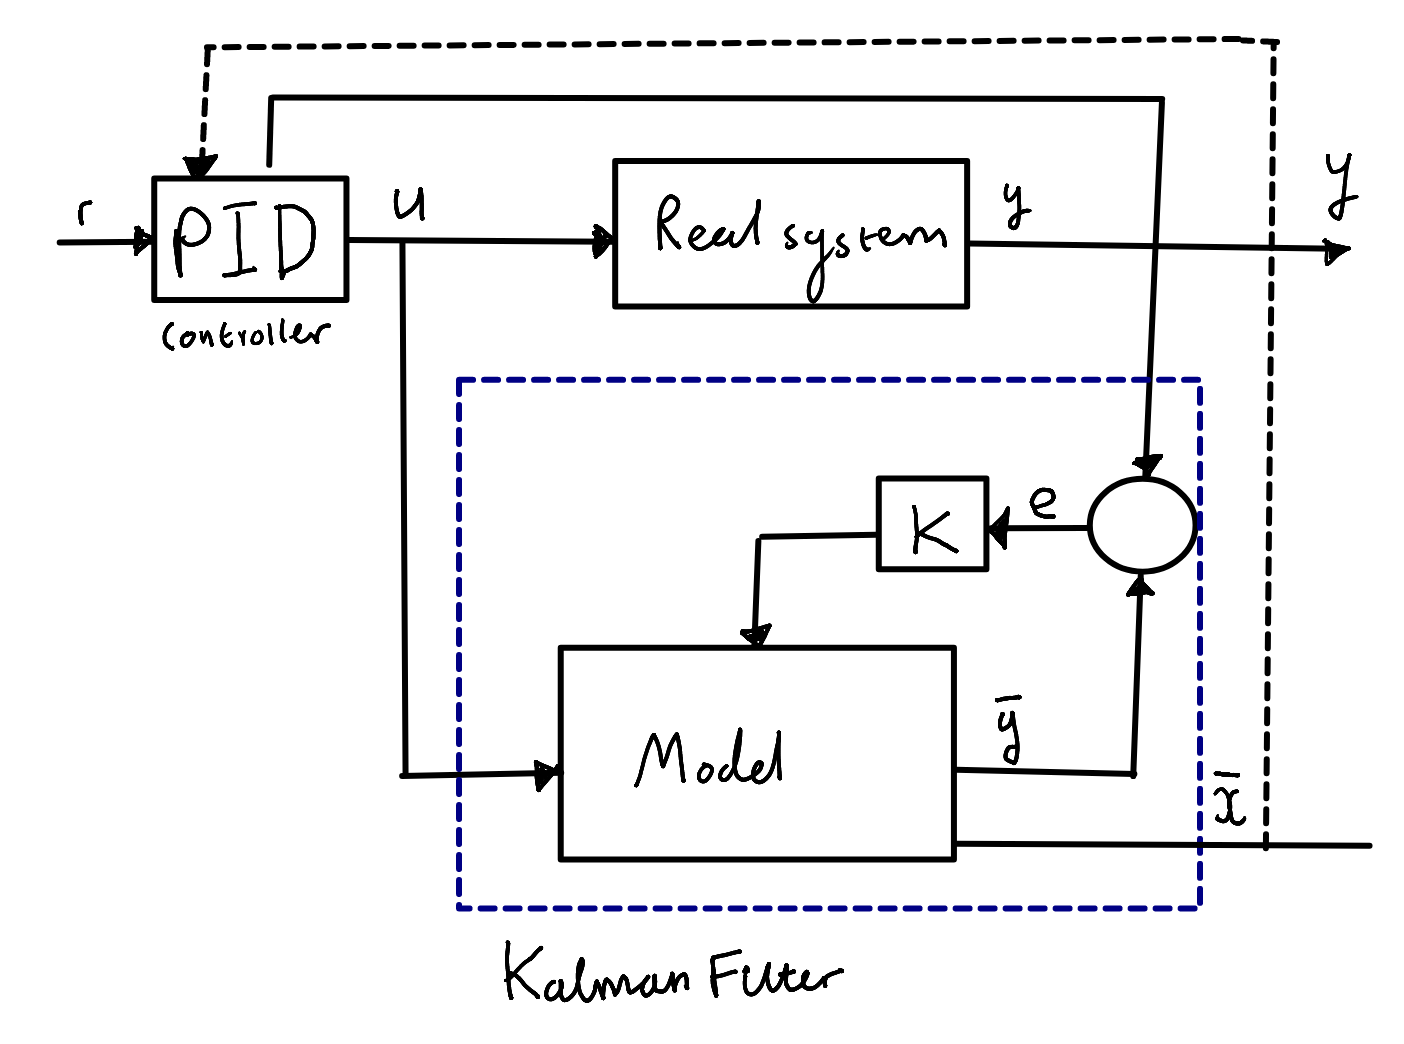 r
PID
Controller
u
Real system
y
y
K
e
Model
ȳ
x̄
Kalman Filter